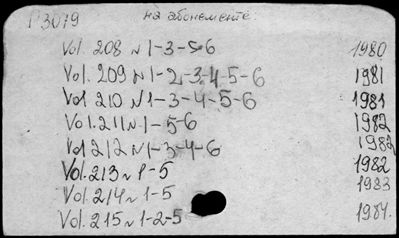 П3079 на абонементе
Vol. 208 N 1-3-5-6 1980
Vol. 209 N 1-2-3-4-5-6 1981
Vol 210 N 1-3-4-5-6 1981
Vol. 211 N 1-5-6 1982
Vol 212 N 1-3-4-6 1982
Vol. 213 N 1-5 1982
Vol. 214 N 1-5 1983
Vol. 215 N 1-2-5 1984.